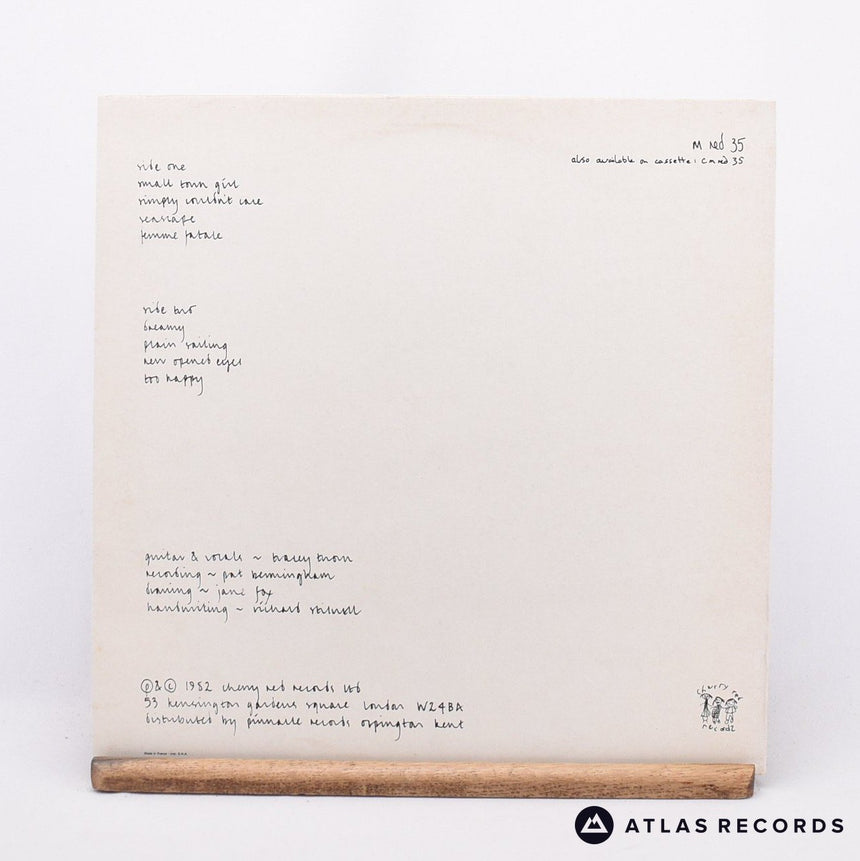 m red 35
also available on cassette: c m red 35
side one
small town girl
simply couldn't care
seascape
femme fatale
side two
dreamy
plain sailing
new opened eyes
too happy
guitar & vocals ~ tracey thorn
recording ~ pat bermingham
drawing ~ jane fox
handwriting ~ richard
℗&© 1982 cherry red records ltd
53 kensington gardens square london W24BA
distributed by pinnacle records orpington kent
cherry red
records
Made in France
ATLAS RECORDS